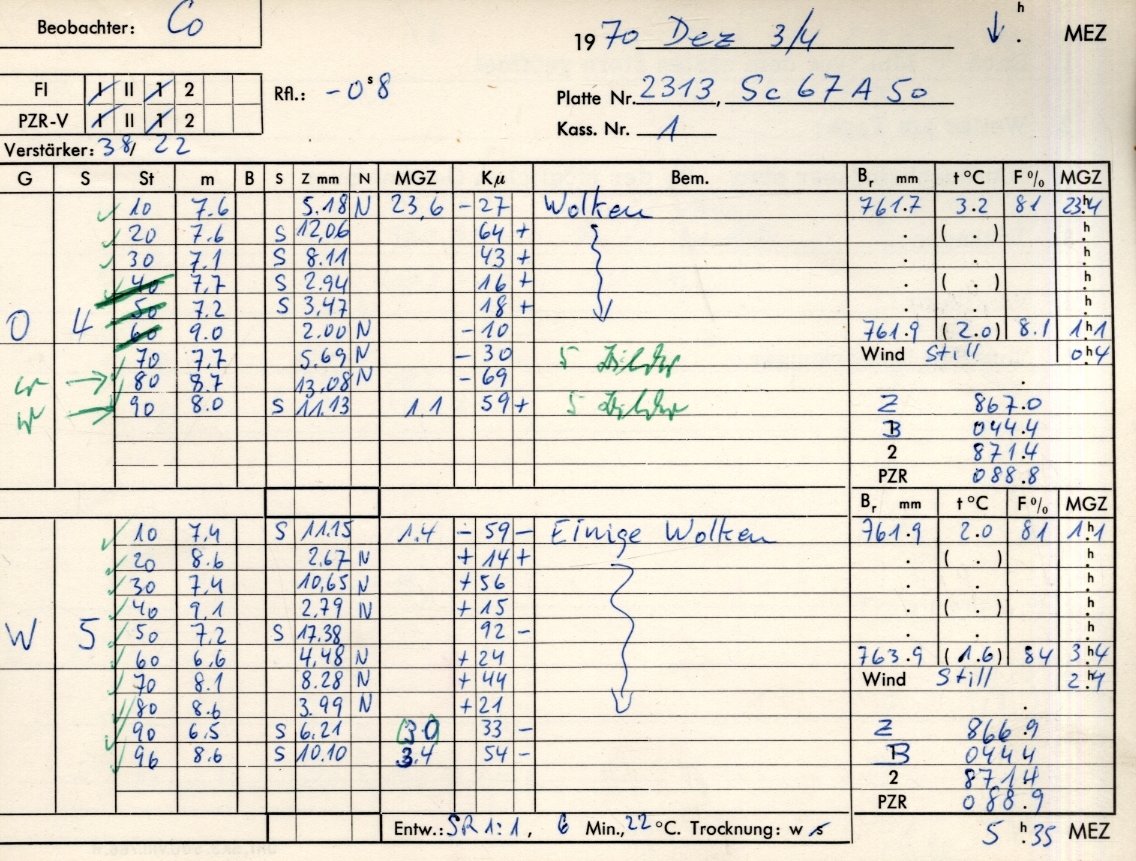 Beobachter: Co
1970 Dez 3/4 h . MEZ
FI I II 1 2 Rfl.: -0s8 Platte Nr. 2313, Sc 67 A 50
PZR-V I II 1 2 Kass. Nr. 1
Verstärker: 38/ 22
G S St m B S Z mm N MGZ Kμ Bem. Br mm t °C F % MGZ
10 7.6 5.18 N 23,6 - 27 Wolken 761.7 3.2 81 23h4
20 7.6 S 12,06 64 + . ( . ) h
30 7.1 S 8.11 43 + . . h
40 7,7 S 2.94 16 + . ( . ) h
50 7.2 S 3,47 18 + . . h
O 4 60 9.0 2.00 N - 10 761.9 (2.0) 8.1 1h1
70 7,7 5.69 N - 30 5 Wind Still 0h4
80 8.7 13,08 N - 69
90 8.0 S 11.13 1.1 59 + 5 Z 867.0
B 044.4
2 871.4
PZR 088.8
Br mm t °C F % MGZ
10 7,4 S 11.15 1.4 - 59 - Einige Wolken 761.9 2.0 81 1h1
20 8.6 2,67 N + 14 + . ( . ) h
30 7,4 10,65 N + 56 . . h
40 9,1 2,79 N + 15 . ( . ) h
W 5 50 7,2 S 17.38 92 - . . h
60 6,6 4,48 N + 24 763.9 (1.6) 84 3h4
70 8.1 8.28 N + 44 Wind Still 2h4
80 8.6 3.99 N + 21
90 6.5 S 6.21 (30) 33 - Z 866.9
96 8.6 S 10.10 3.4 54 - B 0444
2 871.4
PZR 088.9
Entw.: SR 1:1, 6 Min., 22 °C. Trocknung: w s 5 h.35 MEZ